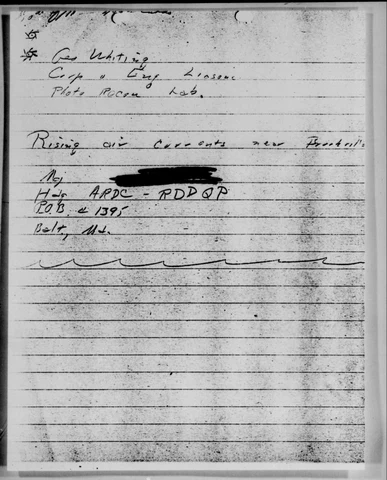 Geo Whiting
Corp o Eng Liasoni
Photo Recon Lab.
Rising air currents near
Maj
Hdq ARDC - RDDQP
P.O.B. # 1395
Balt, Md.